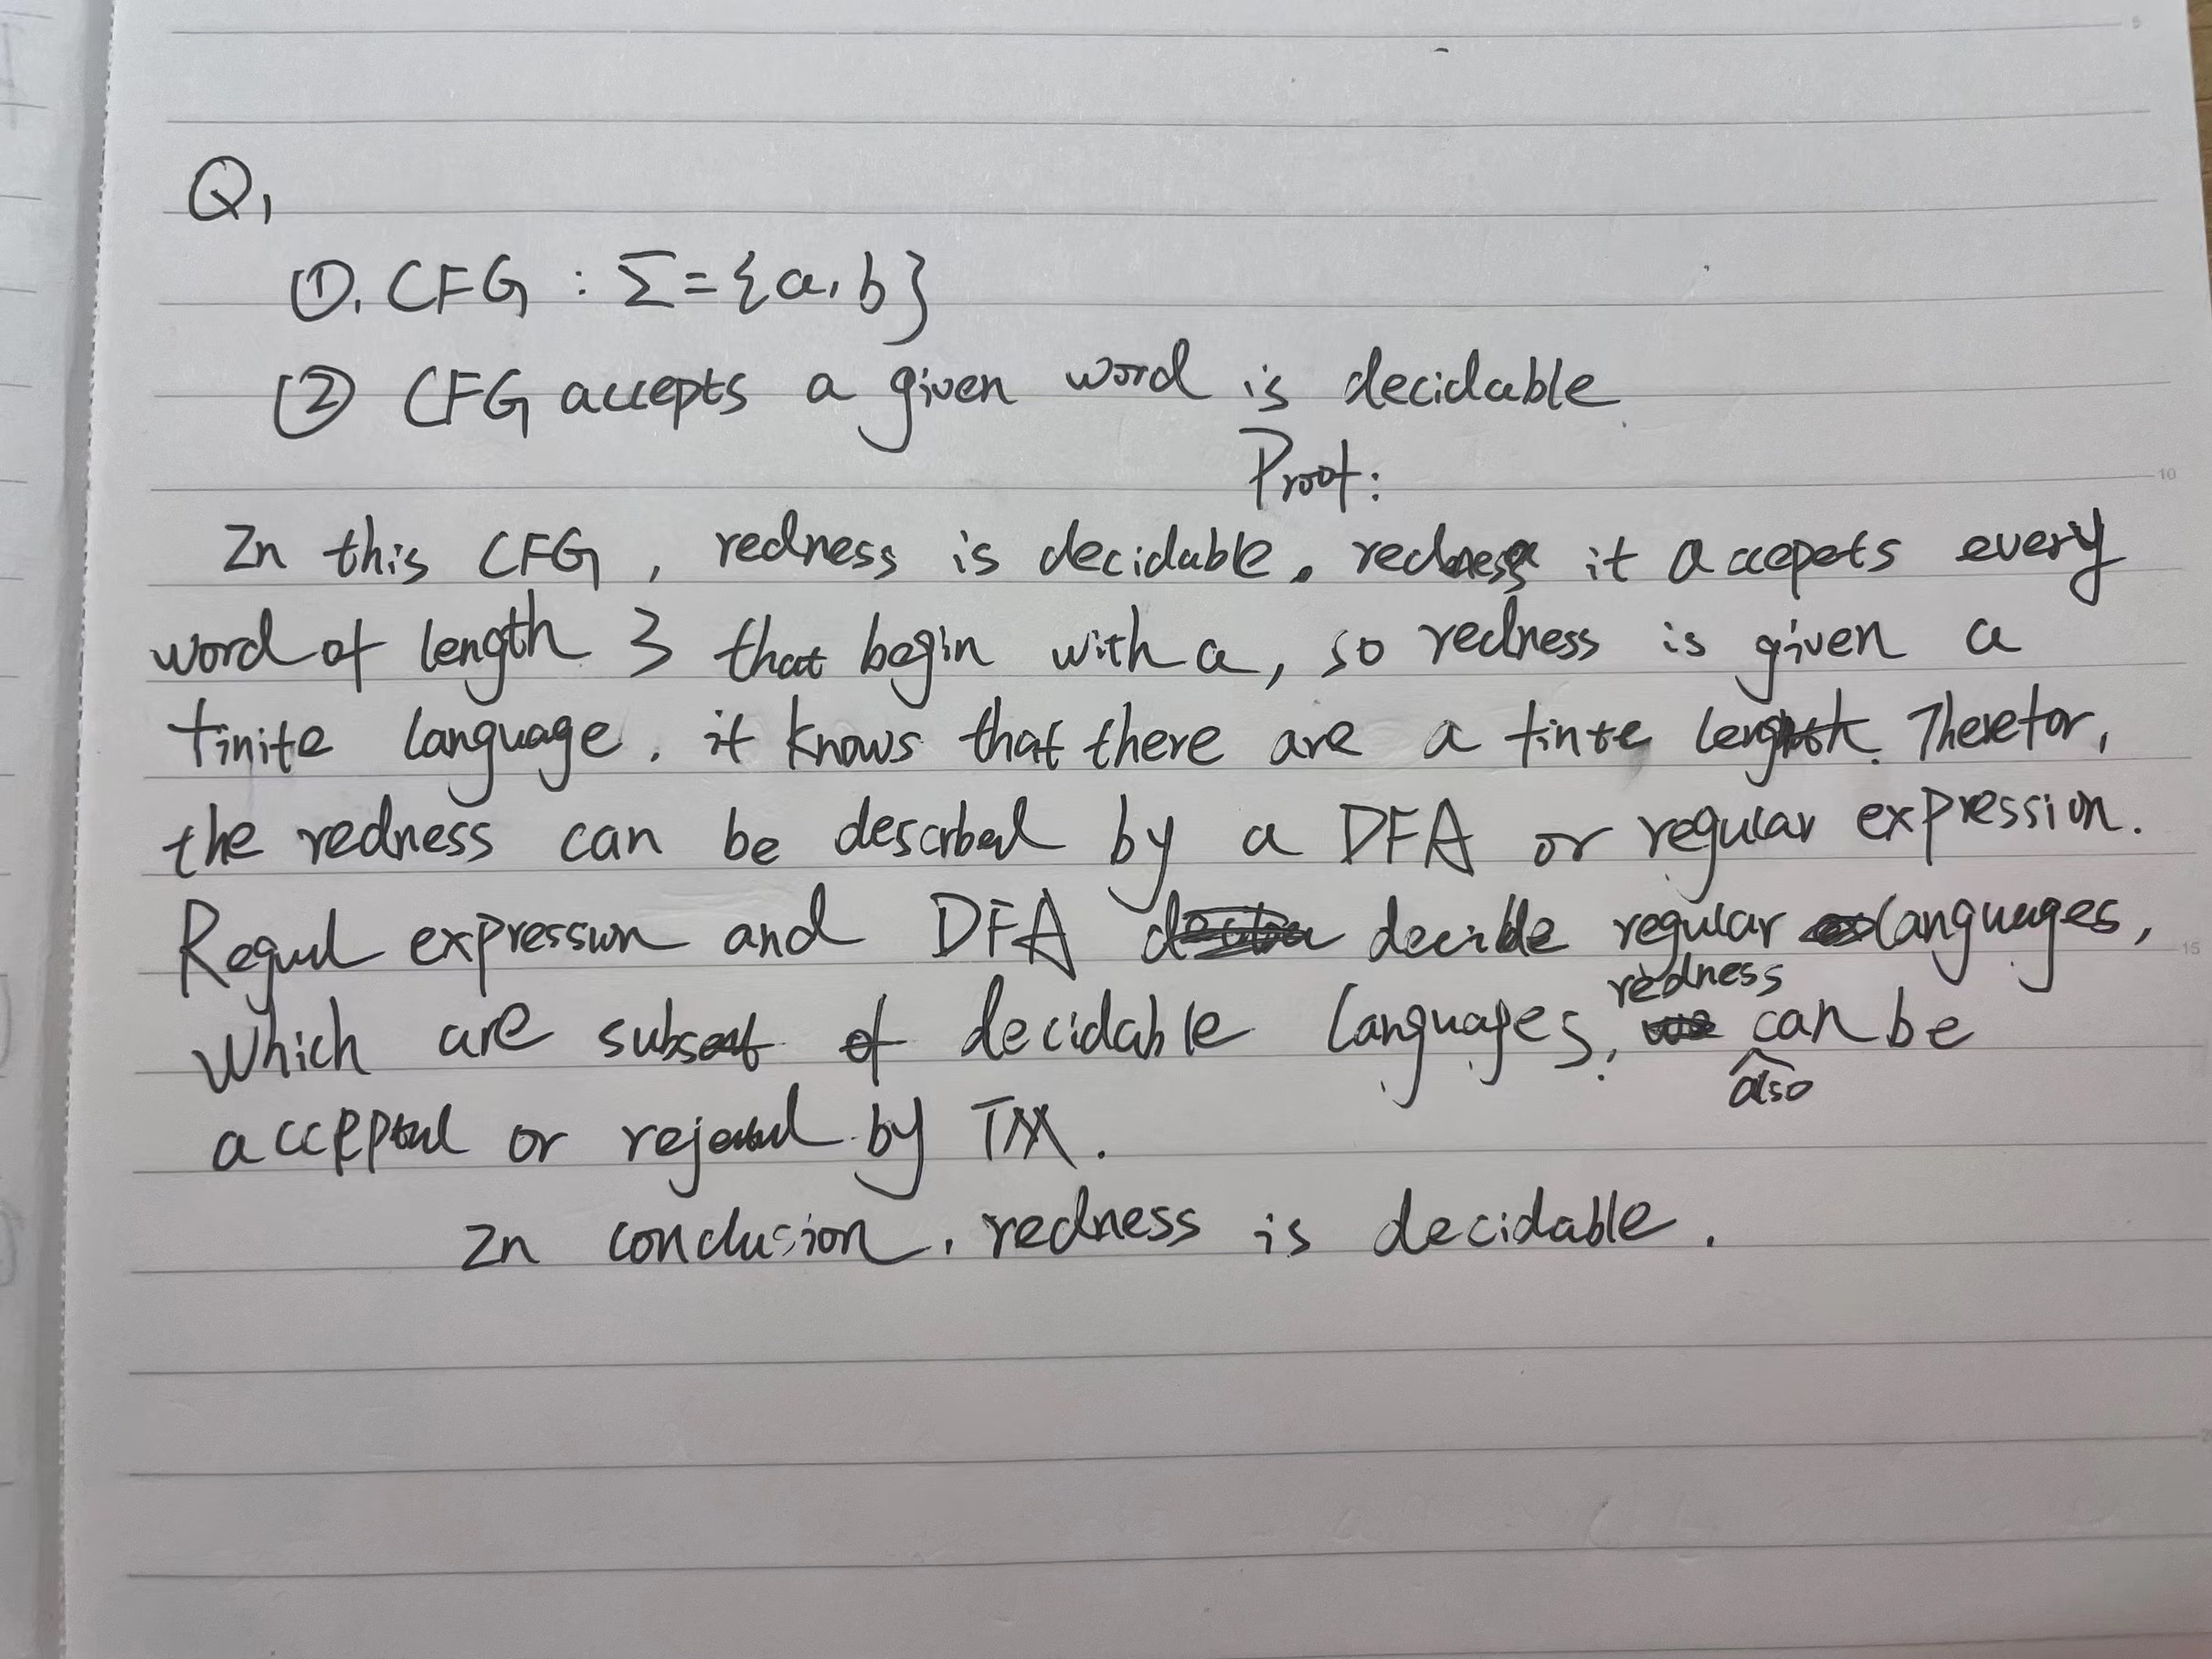 Q1
①. CFG : Σ={a,b}
② CFG accepts a given word is decidable
Proof:
In this CFG, redness is decidable. it accepets every
word of length 3 that begin with a, so redness is given a
finite language. it knows that there are a finte length. Therefor,
the redness can be descrbed by a DFA or regular expression.
Regul expression and DFA decide regular languages,
which are subset of decidable languages. redness can also be
accepted or rejected by TM.
In conclusion, redness is decidable.